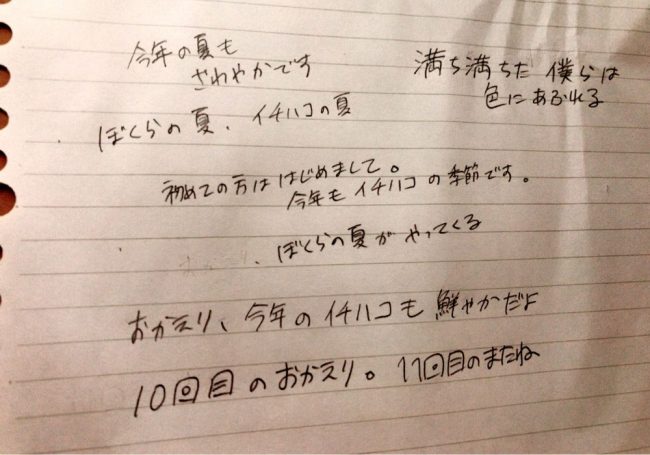 今年の夏も
さわやかです
満ち満ちた 僕らは
色にあふれる
ぼくらの夏、イチハコの夏
初めての方ははじめまして。
今年もイチハコの季節です。
、ぼくらの夏がやってくる
おかえり、今年のイチハコも鮮やかだよ
10回目のおかえり。11回目のまたね